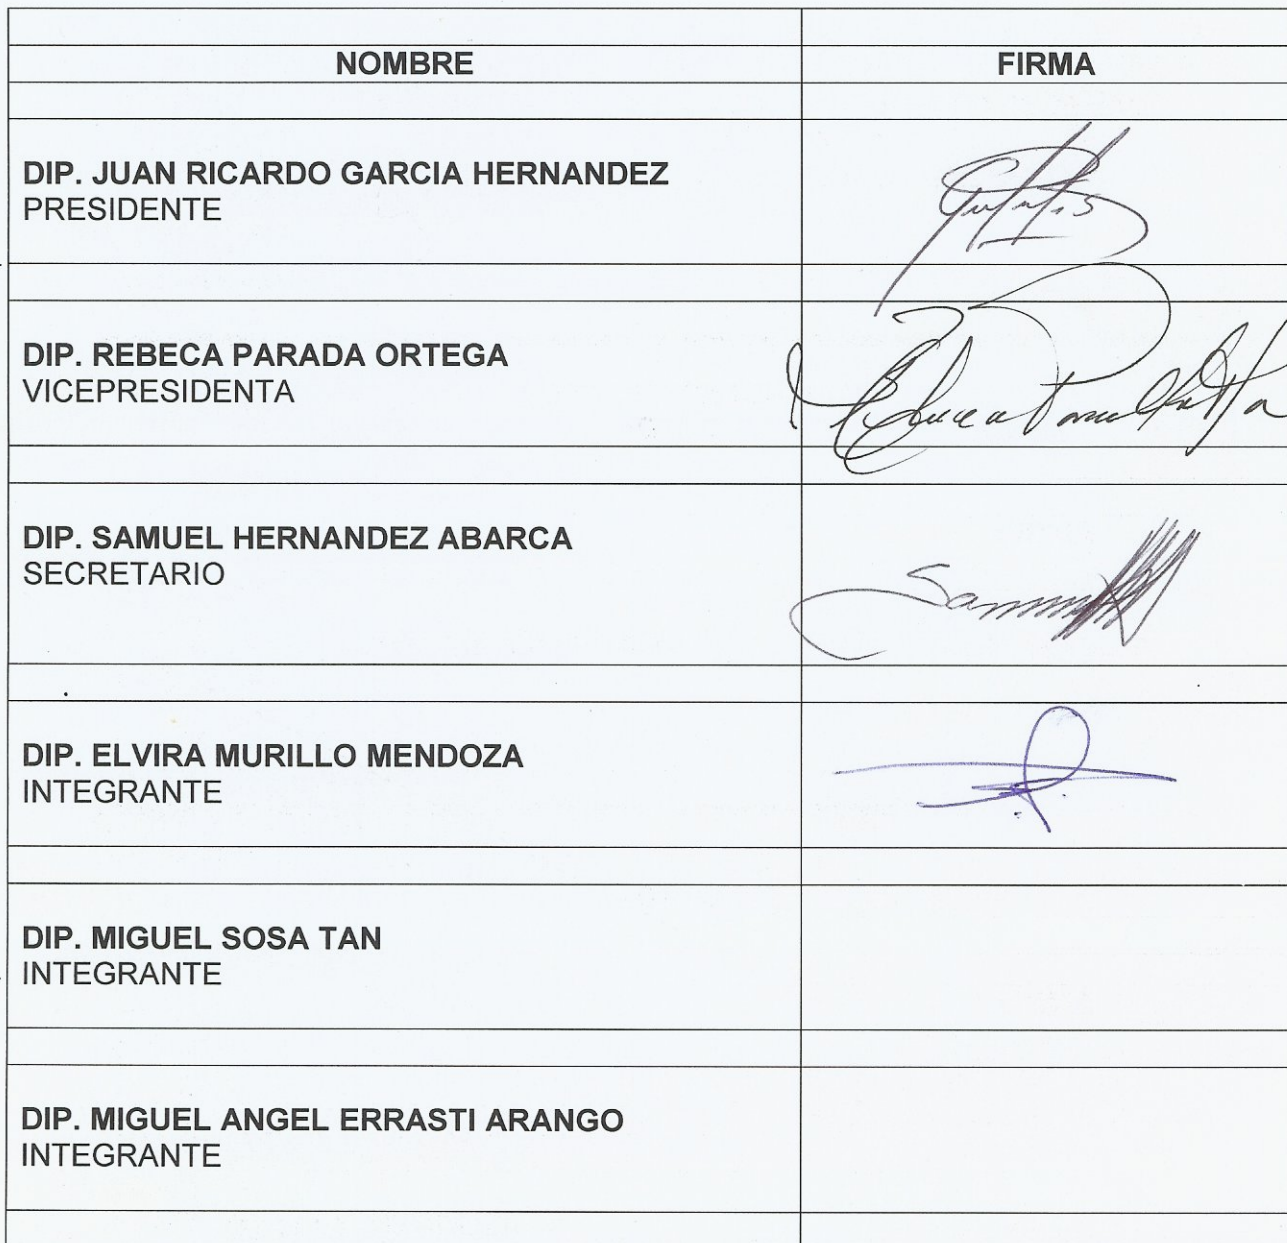 NOMBRE FIRMA
DIP. JUAN RICARDO GARCIA HERNANDEZ
PRESIDENTE
DIP. REBECA PARADA ORTEGA
VICEPRESIDENTA
DIP. SAMUEL HERNANDEZ ABARCA
SECRETARIO
DIP. ELVIRA MURILLO MENDOZA
INTEGRANTE
DIP. MIGUEL SOSA TAN
INTEGRANTE
DIP. MIGUEL ANGEL ERRASTI ARANGO
INTEGRANTE